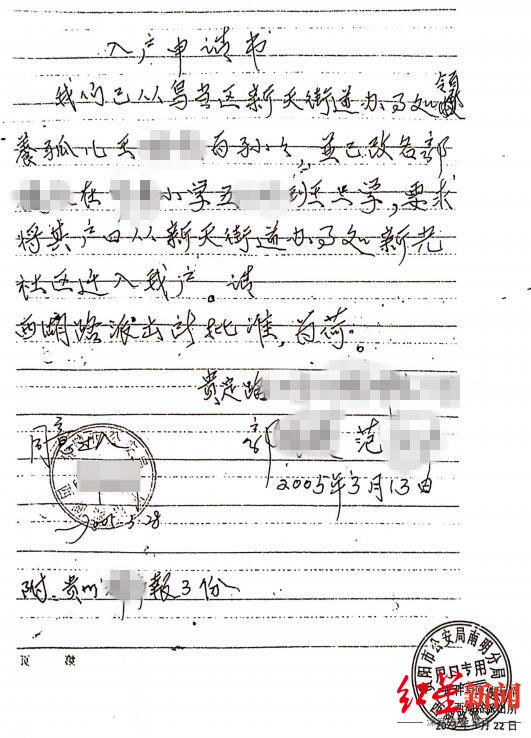 入户申请书
我们已从乌当区新天街道办事处领
养孤儿王 为孙女，并已改名郭
在 小学五 班上学，要求
将其户口从新天街道办事处新光
社区迁入我户。请
西湖路派出所批准，为荷。
贵定路
同意迁入 郭 范
2005年3月13日
2005.5.28
附：贵州 報3份
阳市公安局南明分局
户口专用
红星新闻
月22日